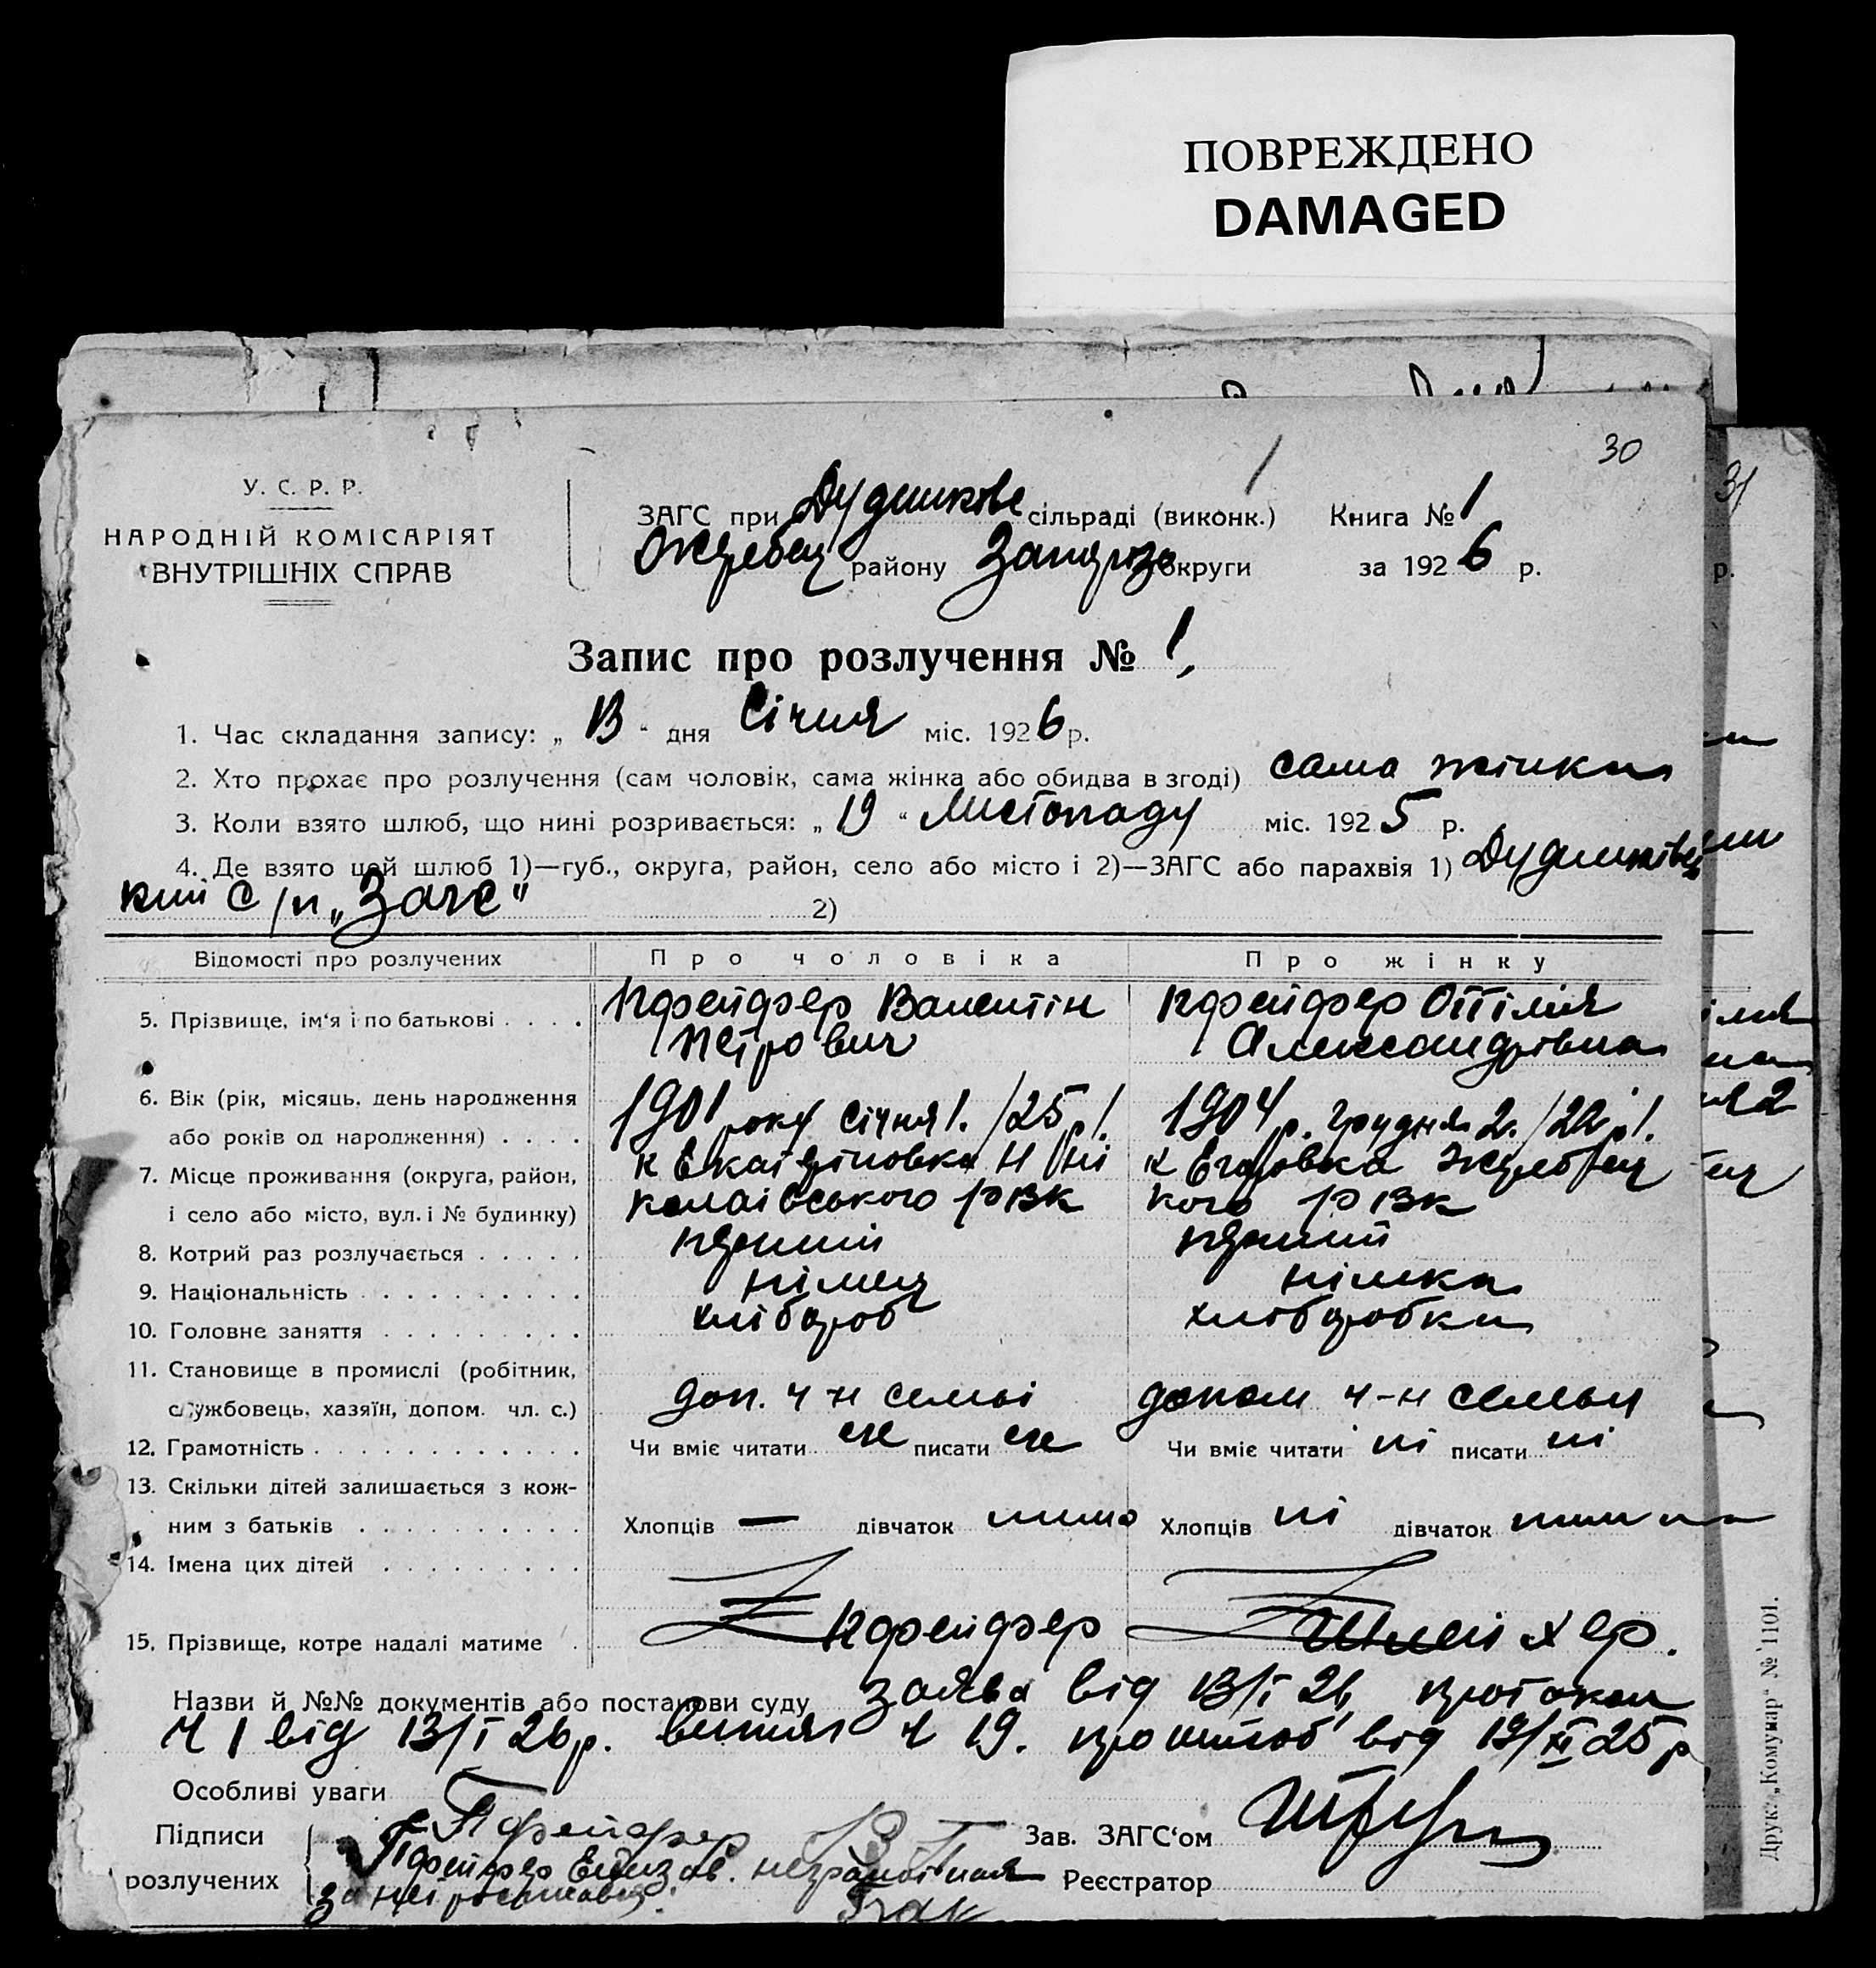 ПОВРЕЖДЕНО
DAMAGED
30
31
У. С. Р. Р.
НАРОДНІЙ КОМІСАРІЯТ
ВНУТРІШНІХ СПРАВ
ЗАГС при Дудниково сільраді (виконк.) Книга № 1
Жеребец району Запоріз округи за 1926 р.
р.
Запис про розлучення № 1
1. Час складання запису: „ 13 " дня Січня міс. 1926 р.
2. Хто прохає про розлучення (сам чоловік, сама жінка або обидва в згоді) сама жінка
3. Коли взято шлюб, що нині розривається: „ 19 " Листопаду міс. 1925 р.
4. Де взято цей шлюб 1)—губ., округа, район, село або місто і 2)—ЗАГС або парахвія 1)
кий С/р „Загс" 2)
Відомості про розлучених Про чоловіка Про жінку
5. Прізвище, ім'я і по батькові . . . . Пфейфер Валентін Пфейфер Оттілія
Петрович Александрівна
6. Вік (рік, місяць, день народження 1901 року січня 1. /25 р/. 1904 р. грудня 2. /22 р/.
або років од народження) . . . .
7. Місце проживання (округа, район, к Екатеріновка Ні к Егоровка Жеребец
і село або місто, вул. і № будинку) колаівського РВК кого РВК
8. Котрий раз розлучається . . . . . перший перший
9. Національність . . . . . . . . . . німец німка
10. Головне заняття . . . . . . . . . хлібороб хлібуробка
11. Становище в промислі (робітник,
службовець, хазяїн, допом. чл. с.) доп. ч-н семьі допом ч-н семьи
12. Грамотність . . . . . . . . . . . . Чи вміє читати є писати є Чи вміє читати ні писати ні
13. Скільки дітей залишається з кож-
ним з батьків . . . . . . . . . . Хлопців — дівчаток Хлопців ні дівчаток
14. Імена цих дітей . . . . . . . . .
15. Прізвище, котре надалі матиме . Пфейфер Шлейхер.
Назви й №№ документів або постанови суду заява від 13/I 26, протокол
ч 1 від 13/I 26 р. ч 19. про шлюб від 19/XI 25 р
Особливі уваги
Підписи Пфейфер Зав. ЗАГС'ом
розлучених Пфейфер неграмотная Реєстратор
за неі
Друк. „Комунар" № 1101.